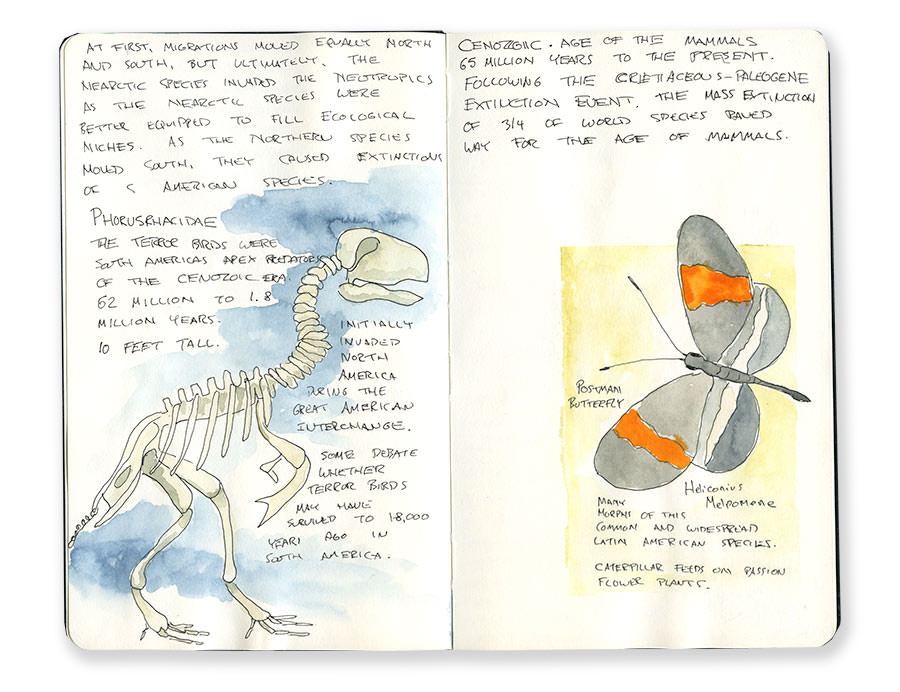 AT FIRST, MIGRATIONS MOVED EQUALLY NORTH
AND SOUTH, BUT ULTIMATELY, THE
NEARCTIC SPECIES INVADED THE NEOTROPICS
AS THE NEARCTIC SPECIES WERE
BETTER EQUIPPED TO FILL ECOLOGICAL
NICHES. AS THE NORTHERN SPECIES
MOVED SOUTH, THEY CAUSED EXTINCTIONS
OF S AMERICAN SPECIES.
PHORUSRHACIDAE
THE TERROR BIRDS WERE
SOUTH AMERICAS APEX PREDATORS
OF THE CENOZOIC ERA.
62 MILLION TO 1.8
MILLION YEARS.
10 FEET TALL.
INITIALLY
INVADED
NORTH
AMERICA
DURING THE
GREAT AMERICAN
INTERCHANGE.
SOME DEBATE
WHETHER
TERROR BIRDS
MAY HAVE
SURVIVED TO 18,000
YEARS AGO IN
SOUTH AMERICA.
CENOZOIC. AGE OF THE MAMMALS
65 MILLION YEARS TO THE PRESENT.
FOLLOWING THE CRETACEOUS-PALEOGENE
EXTINCTION EVENT. THE MASS EXTINCTION
OF 3/4 OF WORLD SPECIES PAVED
WAY FOR THE AGE OF MAMMALS.
POSTMAN
BUTTERFLY
Heliconius
Melpomene
MANY
MORPHS OF THIS
COMMON AND WIDESPREAD
LATIN AMERICAN SPECIES.
CATERPILLAR FEEDS ON PASSION
FLOWER PLANTS.